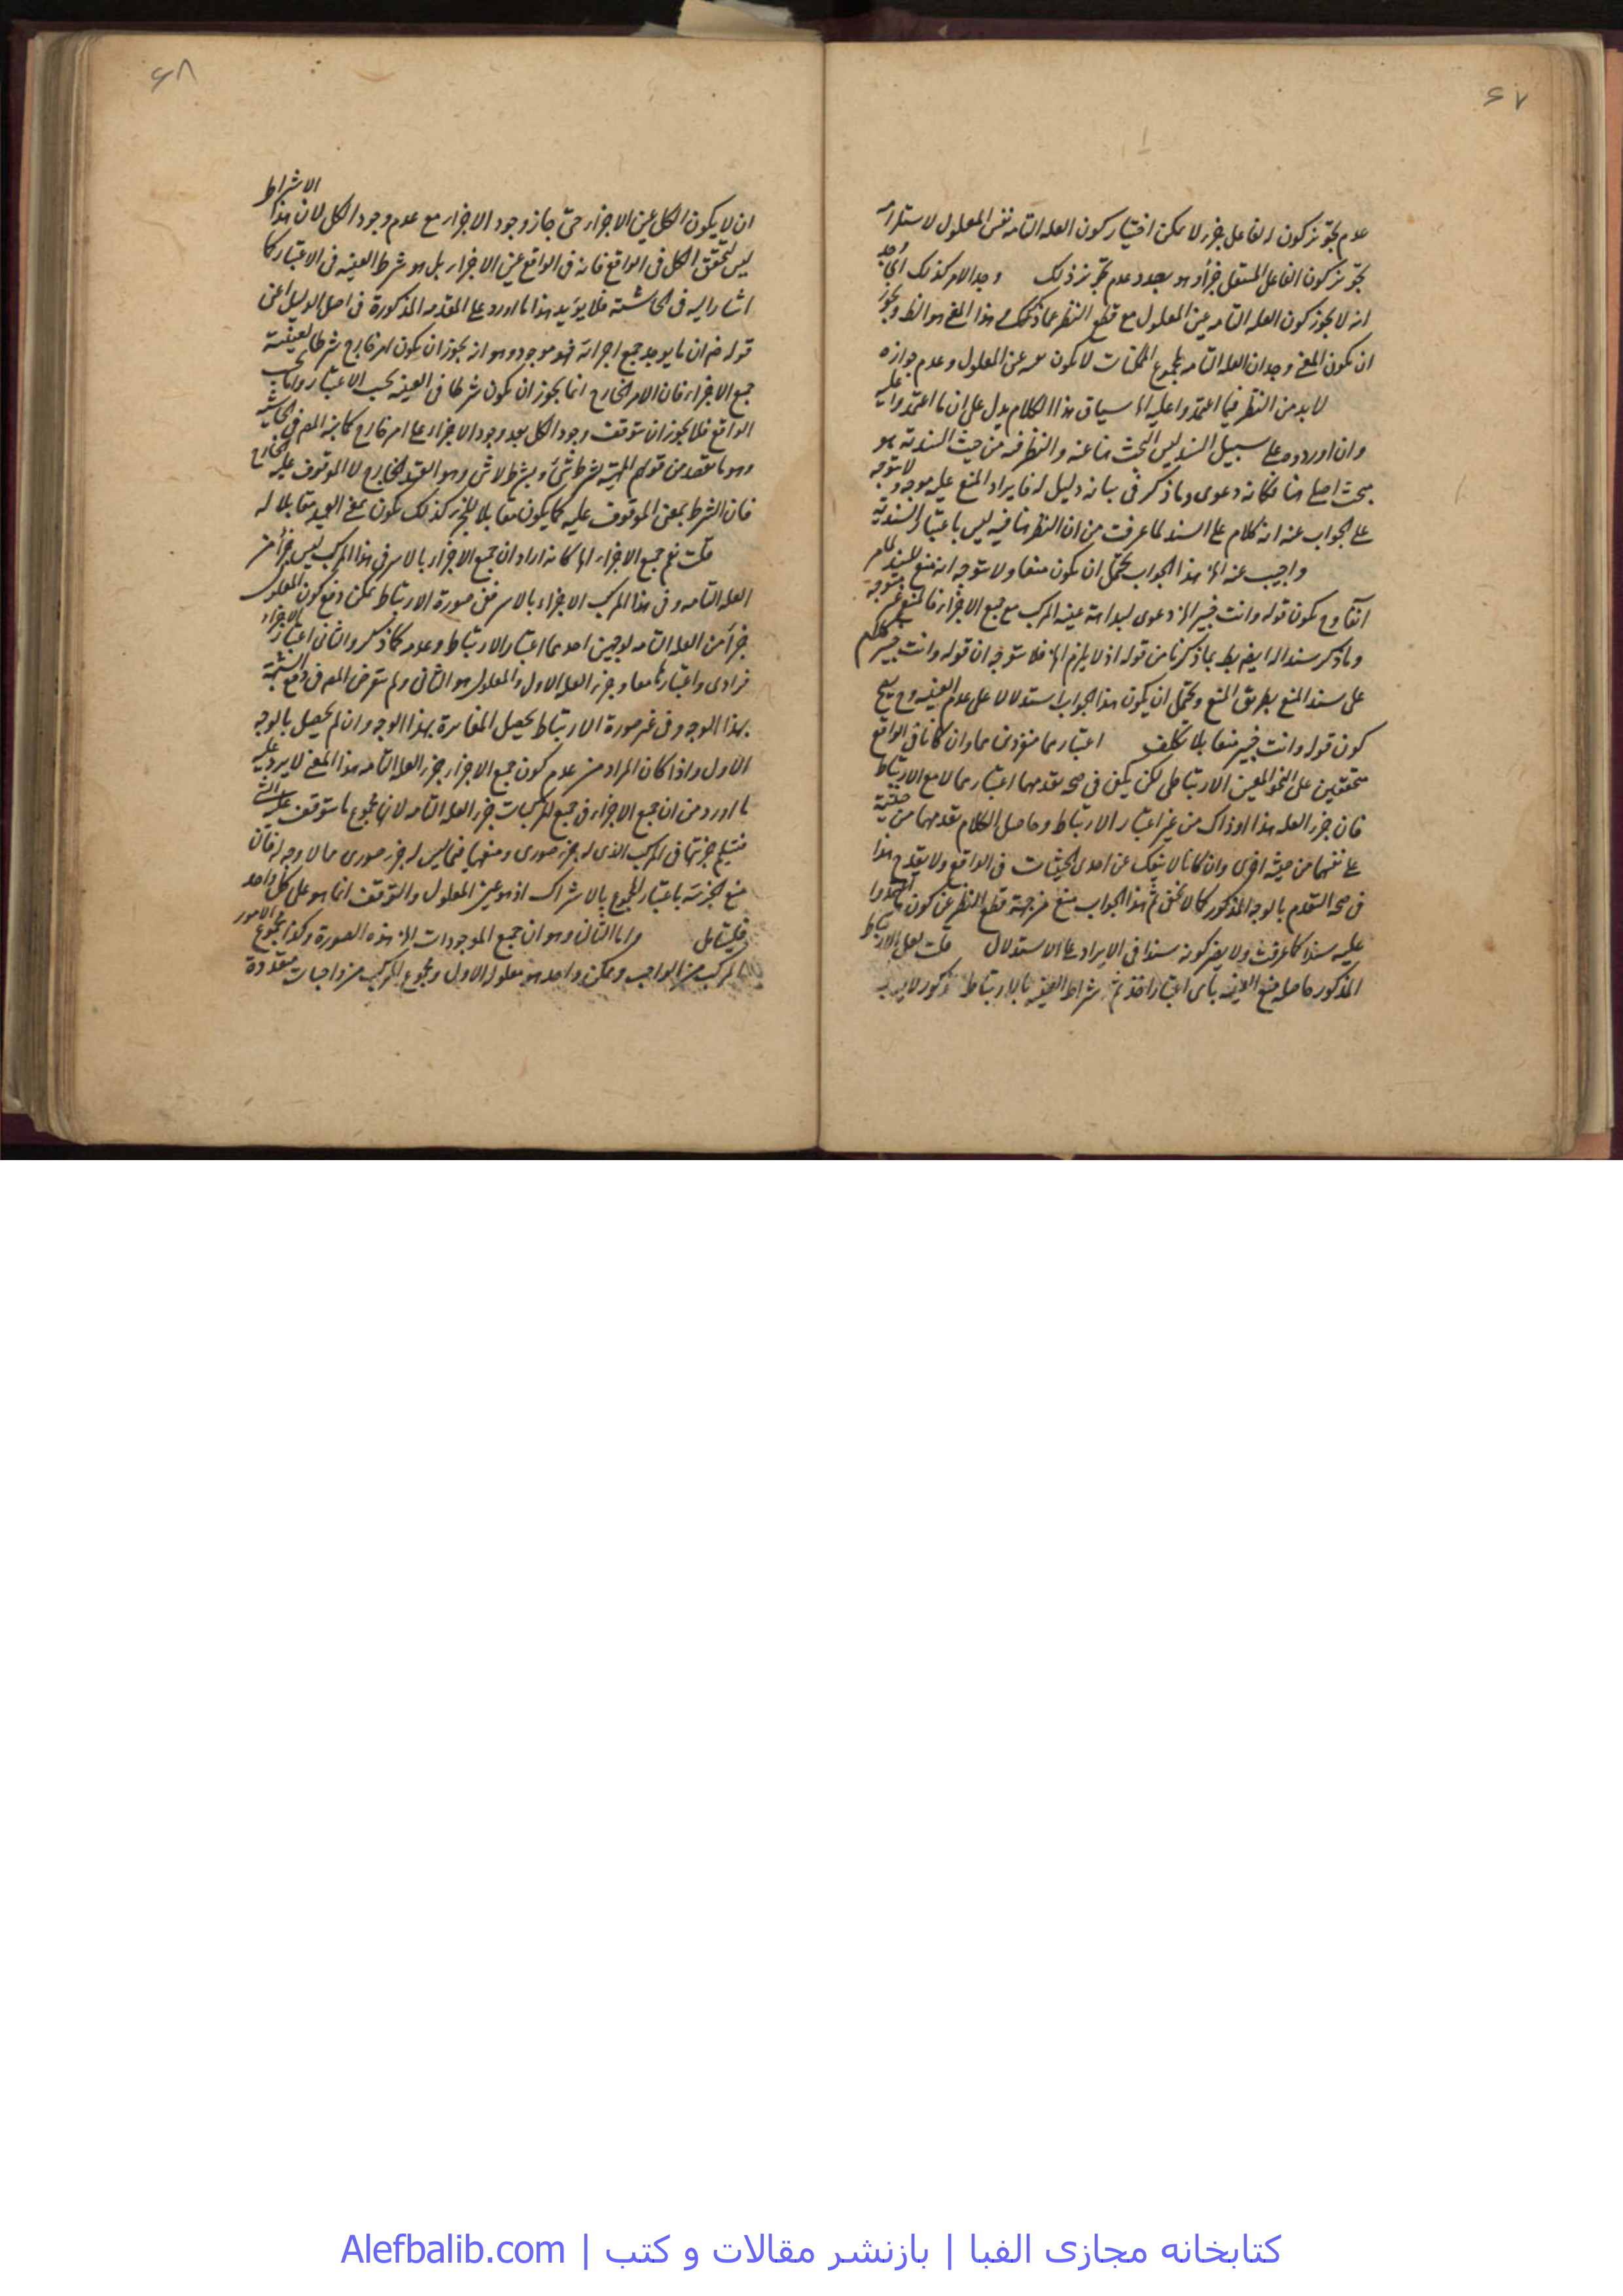 ۶۷
عدم تجويز كون الفاعل جزء لا يمكن اختيار كون العله التامه نفس المعلول لاستلزامه
تجويز كون الفاعل المستقل جزأ وهو بصدد عدم تجويز ذلك وجد الامر كذلك اى
انه لا يجوز كون العله التامه عين المعلول مع قطع النظر عما ذكر هذا المعنى هو الظ ويجوز
ان يكون المعنى وجدان العله التامه لمجموع الممكنات لا يكون عين المعلول وعدم جوازه
لابد من النظر فيما اعتمدوا عليه الخ سياق هذا الكلام يدل على ان ما اعتمدوا عليه
وان اوردوه على سبيل السند ليس البحث هنا عنه والنظر فيه من حيث السنديه بل هو
بحث اصلى هنا فكانه دعوى وما ذكر فى بيانه دليل له فايراد المنع عليه موجه ولا يتوجه
على الجواب عنه انه كلام على السند لما عرفت من ان النظر هنا فيه ليس باعتبار السنديه
واجيب عنه الخ هذا الجواب يحتمل ان يكون منعا ولا يتوجه انه منع للسند لما مر
آنفا وح يكون قوله وانت خبير الخ دعوى لبداهة عينيه المركب مع جميع الاجزاء فالمنع غير متوجه
وما ذكر سندا له ايضا يبطل بما ذكرنا من قوله اذ لا يلزم الخ فلا يتوجه ان قوله وانت خبير كلام
على سند المنع بطريق المنع ويحتمل ان يكون هذا الجواب استدلالا على عدم العينيه وح يصح
كون قوله وانت خبير منعا بلا تكلف اعتبارهما منفردين هما وان كانا فى الواقع
متحققين على النحو المعين الارتباطى لكن يكفى فى صحه تقدمهما اعتبارهما لا مع الارتباط
فان جزء العله هذا او ذاك من غير اعتبار الارتباط وحاصل الكلام تقدمهما من حيثية
على نفسهما من حيثية اخرى وان كانا لا ينفك عن احدى الحيثيات فى الواقع ولا يقدح هذا
فى صحه التقدم بالوجه المذكور كما لا يخفى ثم هذا الجواب منع من جهة قطع النظر عن كون ما اعتمدوا
عليه سندا كما عرفت ولا يضر كونه سندا فى الايراد على الاستدلال قلت لعل الارتباط
المذكور حاصله منع العينيه باى اعتبار اخذ ثم اشتراط العينيه بالارتباط المذكور لا يوجب
۶۸
ان لا يكون الكل عين الاجزاء حتى جاز وجود الاجزاء مع عدم وجود الكل لان هذا الاشتراط
ليس لتحقق الكل فى الواقع فانه فى الواقع عين الاجزاء بل هو شرط العينيه فى الاعتبار كما
اشار اليه فى الحاشية فلا يؤيد هذا ما اورد على المقدمه المذكورة فى اصل الدليل اعنى
قوله ثم ان ما يوجد جميع اجزائه فهو موجود وهو انه يجوز ان يكون امر خارج شرطا لعينية
جميع الاجزاء فان الامر الخارج انما يجوز ان يكون شرطا فى العينيه بحسب الاعتبار واما بحسب
الواقع فلا يجوز ان يتوقف وجود الكل بعد وجود الاجزاء على امر خارج كما بينه المص فى الحاشيه
وهو ما يقصد من قولهم الماهية بشرط شئ وبشرط لا شئ وهو القيد الخارج لا الموقوف عليه
فان الشرط بمعنى الموقوف عليه كما يكون مقابلا للجزء كذلك يكون بمعنى القيد مقابلا له
قلت نعم جميع الاجزاء الخ كانه اراد ان جميع الاجزاء بالاسر فى هذا المركب ليس جزأ من
العله التامه وفى هذا المركب الاجزاء بالاسر ففى صورة الارتباط يمكن دفع كون المعلول
جزأ من العله التامه لوجهين احدهما اعتبار الارتباط وعدمه كما ذكر والثانى اعتبار الاجزاء
فرادى واعتبارها معا وجزء العله الاول والمعلول هو الثانى ولم يتعرض المص فى دفع الشبهة
بهذا الوجه وفى غير صورة الارتباط يحصل المغايرة بهذا الوجه وان لم يحصل بالوجه
الاول واذا كان المراد من عدم كون جميع الاجزاء جزء العله التامه هذا المعنى لا يرد عليه
ما اورد من ان جميع الاجزاء فى جميع المركبات جزء العله التامه لانها مجموع ما يتوقف عليه الشئ
فتسليم جزئيتها فى المركب الذى له جزء صورى ومنعها فيما ليس له جزء صورى مما لا وجه له فان
منع الجزئيه باعتبار المجموع بالاشتراك اذ هو عين المعلول والتوقف انما هو على كل واحد
فليتامل واما الثانى وهو ان جميع الموجودات الخ هذه الصورة وكذا مجموع الامور
المركب من الواجب وممكن واحد هو معلوله الاول ومجموع المركب من واجبات متعددة
کتابخانه مجازی الفبا | بازنشر مقالات و کتب | Alefbalib.com